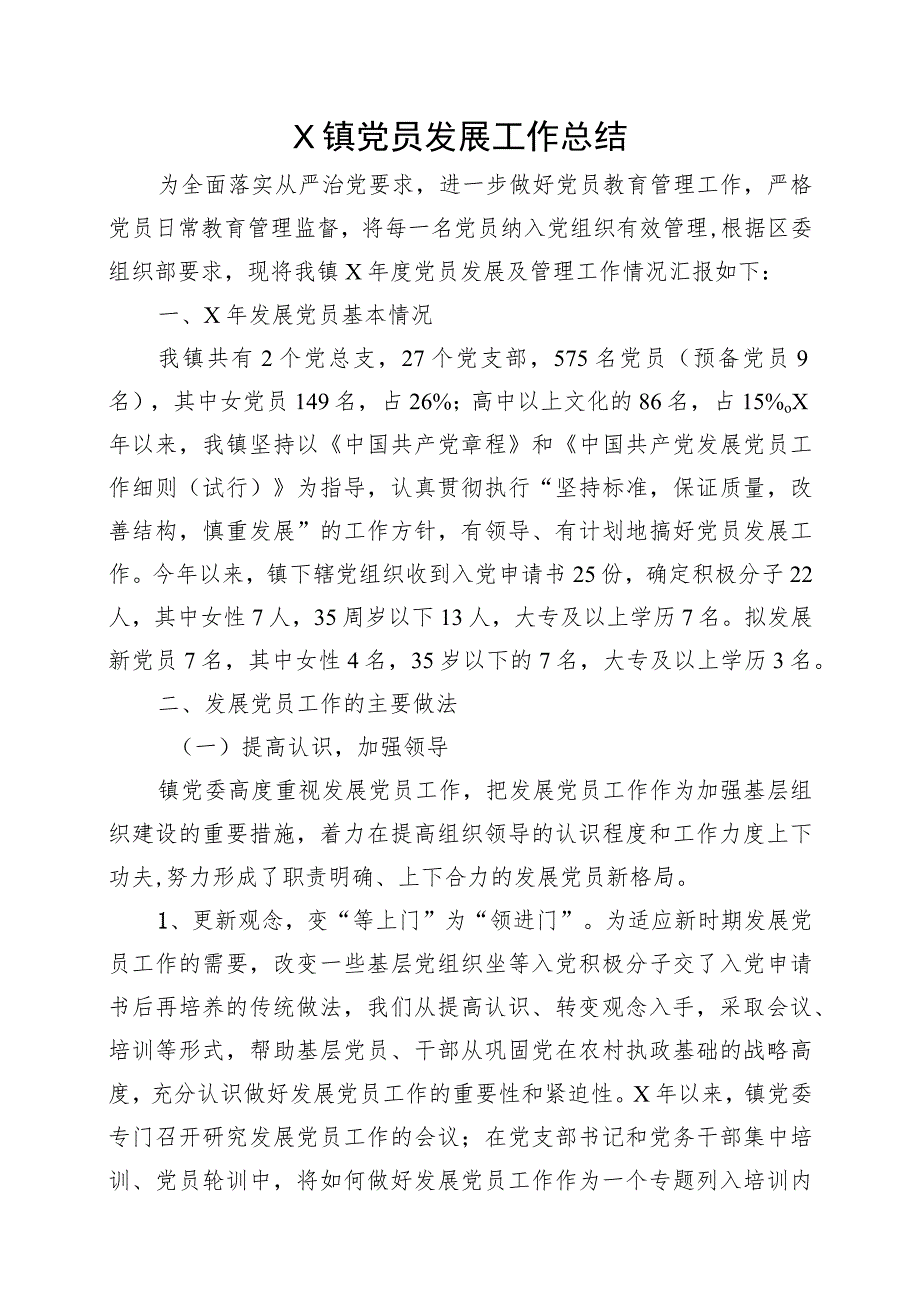 X镇党员发展工作总结
为全面落实从严治党要求，进一步做好党员教育管理工作，严格
党员日常教育管理监督，将每一名党员纳入党组织有效管理,根据区委
组织部要求，现将我镇X年度党员发展及管理工作情况汇报如下：
一、X年发展党员基本情况
我镇共有2个党总支，27个党支部，575名党员（预备党员9
名），其中女党员149名，占26%；高中以上文化的86名，占15%oX
年以来，我镇坚持以《中国共产党章程》和《中国共产党发展党员工
作细则（试行）》为指导，认真贯彻执行“坚持标准，保证质量，改
善结构，慎重发展”的工作方针，有领导、有计划地搞好党员发展工
作。今年以来，镇下辖党组织收到入党申请书25份，确定积极分子22
人，其中女性7人，35周岁以下13人，大专及以上学历7名。拟发展
新党员7名，其中女性4名，35岁以下的7名，大专及以上学历3名。
二、发展党员工作的主要做法
（一）提高认识，加强领导
镇党委高度重视发展党员工作，把发展党员工作作为加强基层组
织建设的重要措施，着力在提高组织领导的认识程度和工作力度上下
功夫,努力形成了职责明确、上下合力的发展党员新格局。
1、更新观念，变“等上门”为“领进门”。为适应新时期发展党
员工作的需要，改变一些基层党组织坐等入党积极分子交了入党申请
书后再培养的传统做法，我们从提高认识、转变观念入手，采取会议、
培训等形式，帮助基层党员、干部从巩固党在农村执政基础的战略高
度，充分认识做好发展党员工作的重要性和紧迫性。X年以来，镇党委
专门召开研究发展党员工作的会议；在党支部书记和党务干部集中培
训、党员轮训中，将如何做好发展党员工作作为一个专题列入培训内